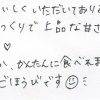 いしくいただいておりま
っくりで上品な甘さ
い、かんたんに食べれま
ごほうびです